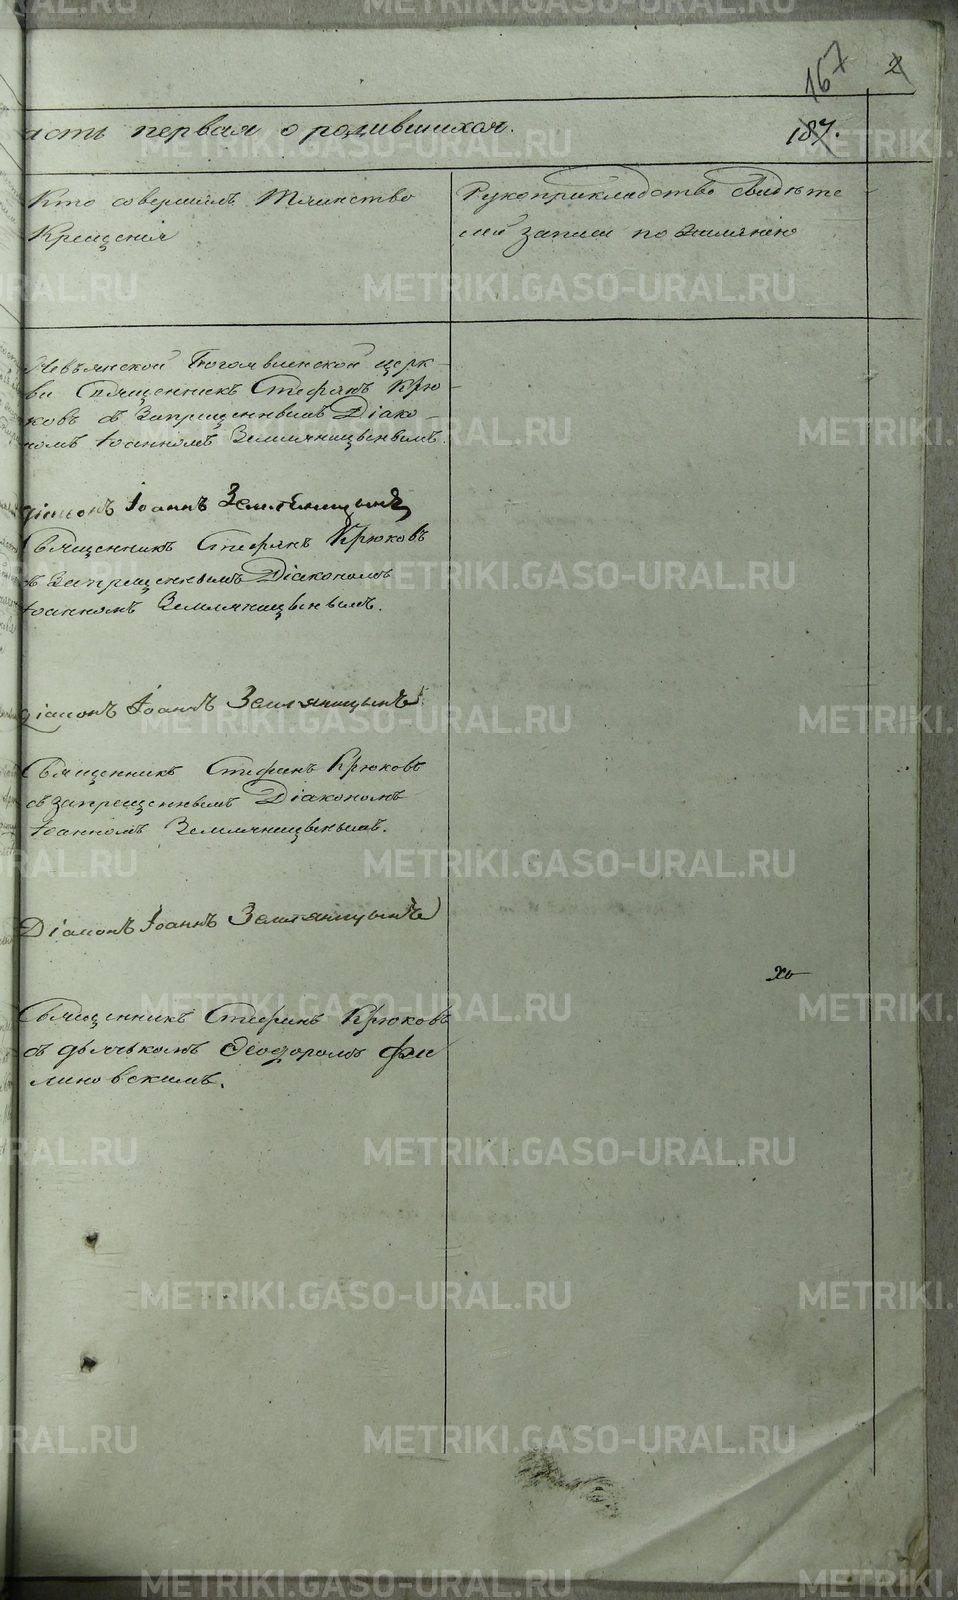 167 2
асть первая о родившихся. 187.
Кто совершилъ Таинство
Крещенія
Рукоприкладство свидѣте
лей записи по желанію
Невьянской Богоявленской церк-
ви Священникъ Стефанъ Крю
ковъ съ запрещеннымъ Діако-
номъ Іоанномъ Земляницынымъ.
Діаконъ Іоаннъ Земляницынъ
Священникъ Стефанъ Крюковъ
съ запрещеннымъ Діакономъ
Іоанномъ Земляницынымъ.
Діаконъ Іоаннъ Земляницынъ
Священникъ Стефанъ Крюковъ
съ запрещеннымъ Діакономъ
Іоанномъ Земляницынымъ.
Діаконъ Іоаннъ Земляницынъ
Священникъ Стефанъ Крюковъ
съ дьячькомъ Ѳеодоромъ Фи
линовскимъ.
METRIKI.GASO-URAL.RU